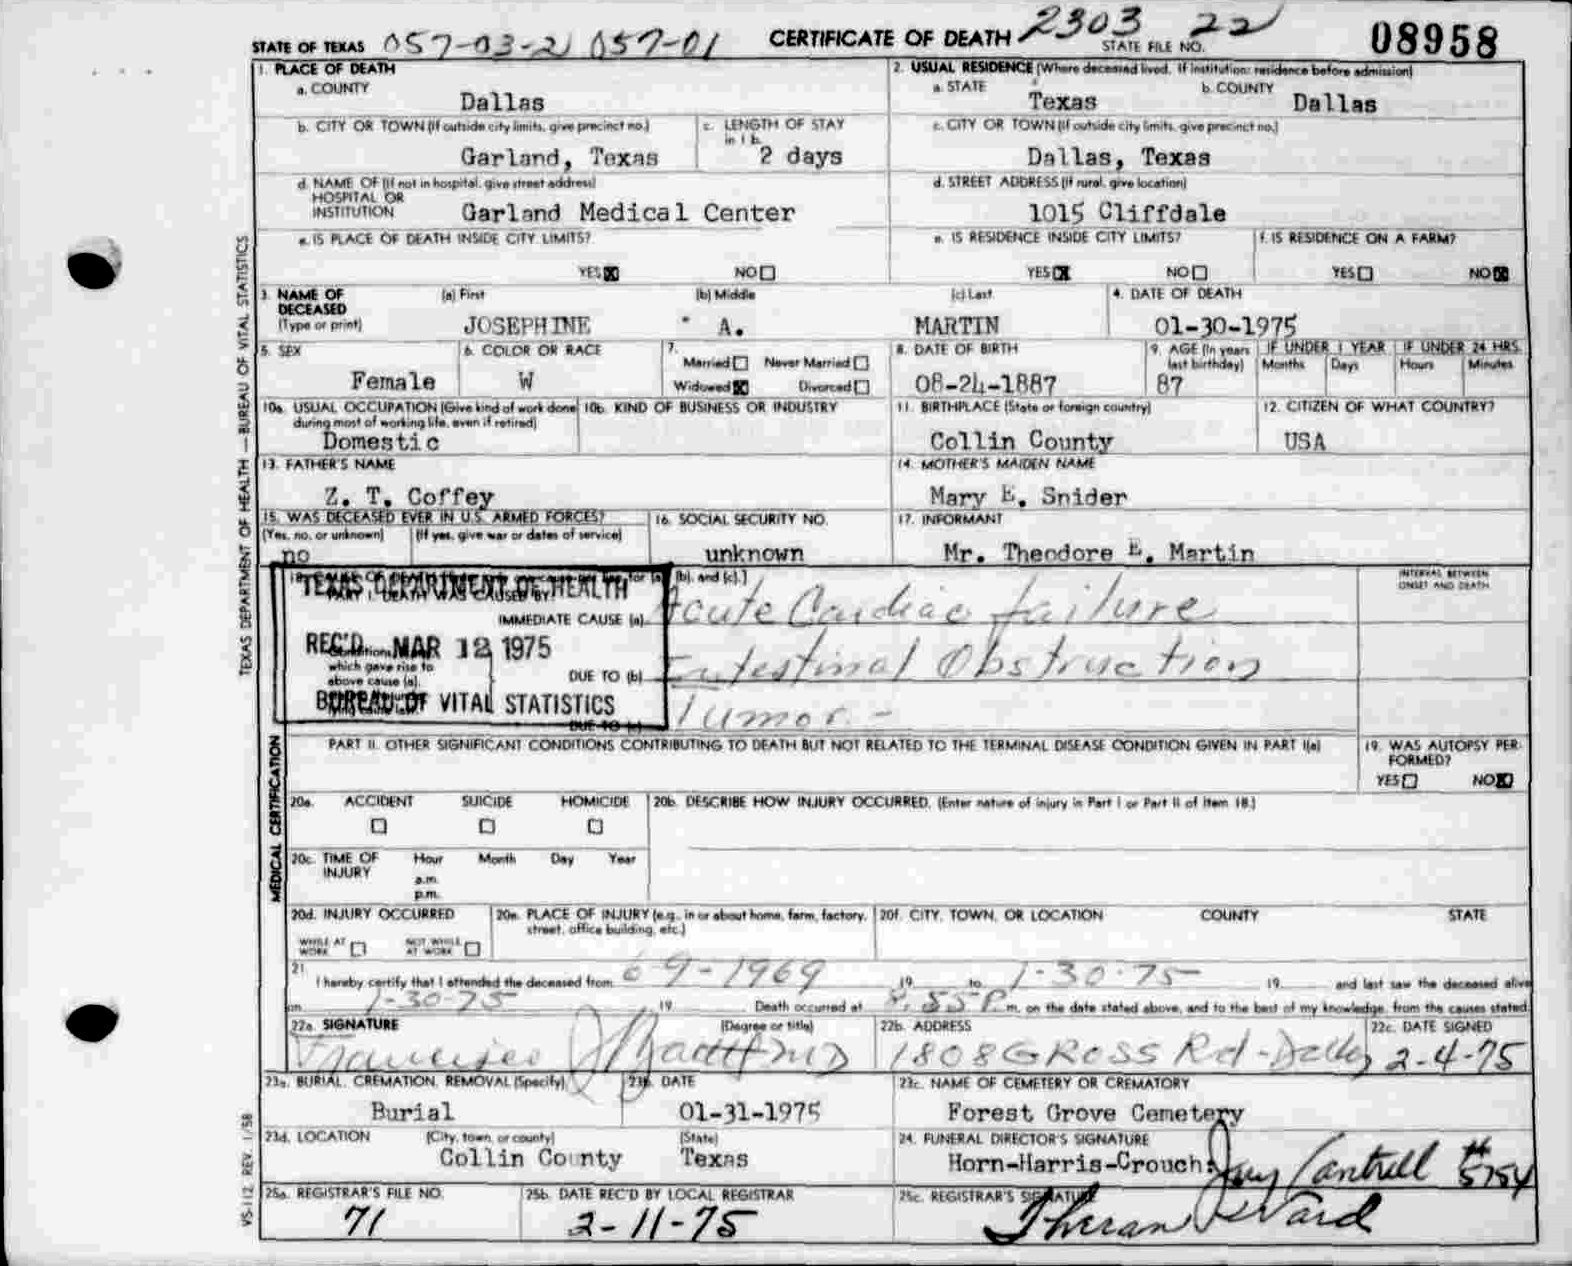 STATE OF TEXAS 057-03-2 057-01 CERTIFICATE OF DEATH 2303 22 STATE FILE NO. 08958
1. PLACE OF DEATH
a. COUNTY
Dallas
2. USUAL RESIDENCE (Where deceased lived. If institution: residence before admission)
a. STATE
Texas
b. COUNTY
Dallas
b. CITY OR TOWN (If outside city limits, give precinct no.)
Garland, Texas
c. LENGTH OF STAY in 1 b.
2 days
c. CITY OR TOWN (If outside city limits, give precinct no.)
Dallas, Texas
d. NAME OF (If not in hospital, give street address)
HOSPITAL OR
INSTITUTION
Garland Medical Center
d. STREET ADDRESS (If rural, give location)
1015 Cliffdale
e. IS PLACE OF DEATH INSIDE CITY LIMITS?
YES NO
e. IS RESIDENCE INSIDE CITY LIMITS?
YES NO
f. IS RESIDENCE ON A FARM?
YES NO
3. NAME OF
DECEASED
(Type or print)
(a) First
JOSEPHINE
(b) Middle
A.
(c) Last
MARTIN
4. DATE OF DEATH
01-30-1975
5. SEX
Female
6. COLOR OR RACE
W
7.
Married Never Married
Widowed Divorced
8. DATE OF BIRTH
08-24-1887
9. AGE (In years last birthday)
87
IF UNDER 1 YEAR
Months Days
IF UNDER 24 HRS.
Hours Minutes
10a. USUAL OCCUPATION (Give kind of work done
during most of working life, even if retired)
Domestic
10b. KIND OF BUSINESS OR INDUSTRY
11. BIRTHPLACE (State or foreign country)
Collin County
12. CITIZEN OF WHAT COUNTRY?
USA
13. FATHER'S NAME
Z. T. Coffey
14. MOTHER'S MAIDEN NAME
Mary E. Snider
15. WAS DECEASED EVER IN U.S. ARMED FORCES?
(Yes, no, or unknown) (If yes, give war or dates of service)
no
16. SOCIAL SECURITY NO.
unknown
17. INFORMANT
Mr. Theodore E. Martin
for (a), (b), and (c).]
INTERVAL BETWEEN
ONSET AND DEATH
TEXAS DEPARTMENT OF HEALTH
PART I. DEATH WAS CAUSED BY:
IMMEDIATE CAUSE (a)
Acute Cardiac failure
REC'D MAR 12 1975
which gave rise to
above cause (a),
DUE TO (b)
Intestinal Obstruction
BUREAU OF VITAL STATISTICS
DUE TO (c)
Tumor -
PART II. OTHER SIGNIFICANT CONDITIONS CONTRIBUTING TO DEATH BUT NOT RELATED TO THE TERMINAL DISEASE CONDITION GIVEN IN PART I(a)
19. WAS AUTOPSY PER-
FORMED?
YES NO
20a. ACCIDENT SUICIDE HOMICIDE
20b. DESCRIBE HOW INJURY OCCURRED. (Enter nature of injury in Part I or Part II of item 18.)
20c. TIME OF
INJURY
Hour Month Day Year
a.m.
p.m.
20d. INJURY OCCURRED
WHILE AT
WORK
NOT WHILE
AT WORK
20e. PLACE OF INJURY (e.g., in or about home, farm, factory,
street, office building, etc.)
20f. CITY, TOWN, OR LOCATION COUNTY STATE
21.
I hereby certify that I attended the deceased from 6-9-1969 19 to 1-30-75 19 and last saw the deceased alive
on 1-30-75 19 Death occurred at 8:55P m. on the date stated above, and to the best of my knowledge, from the causes stated.
22a. SIGNATURE (Degree or title)
Francisco MD
22b. ADDRESS
1808 GROSS Rd - Dallas
22c. DATE SIGNED
2-4-75
23a. BURIAL, CREMATION, REMOVAL (Specify)
Burial
23b. DATE
01-31-1975
23c. NAME OF CEMETERY OR CREMATORY
Forest Grove Cemetery
23d. LOCATION (City, town, or county) (State)
Collin County Texas
24. FUNERAL DIRECTOR'S SIGNATURE
Horn-Harris-Crouch: Jay Cantrell #5754
25a. REGISTRAR'S FILE NO.
71
25b. DATE REC'D BY LOCAL REGISTRAR
2-11-75
25c. REGISTRAR'S SIGNATURE
Theran Ward
TEXAS DEPARTMENT OF HEALTH — BUREAU OF VITAL STATISTICS
MEDICAL CERTIFICATION
VS-112 REV. 1/58